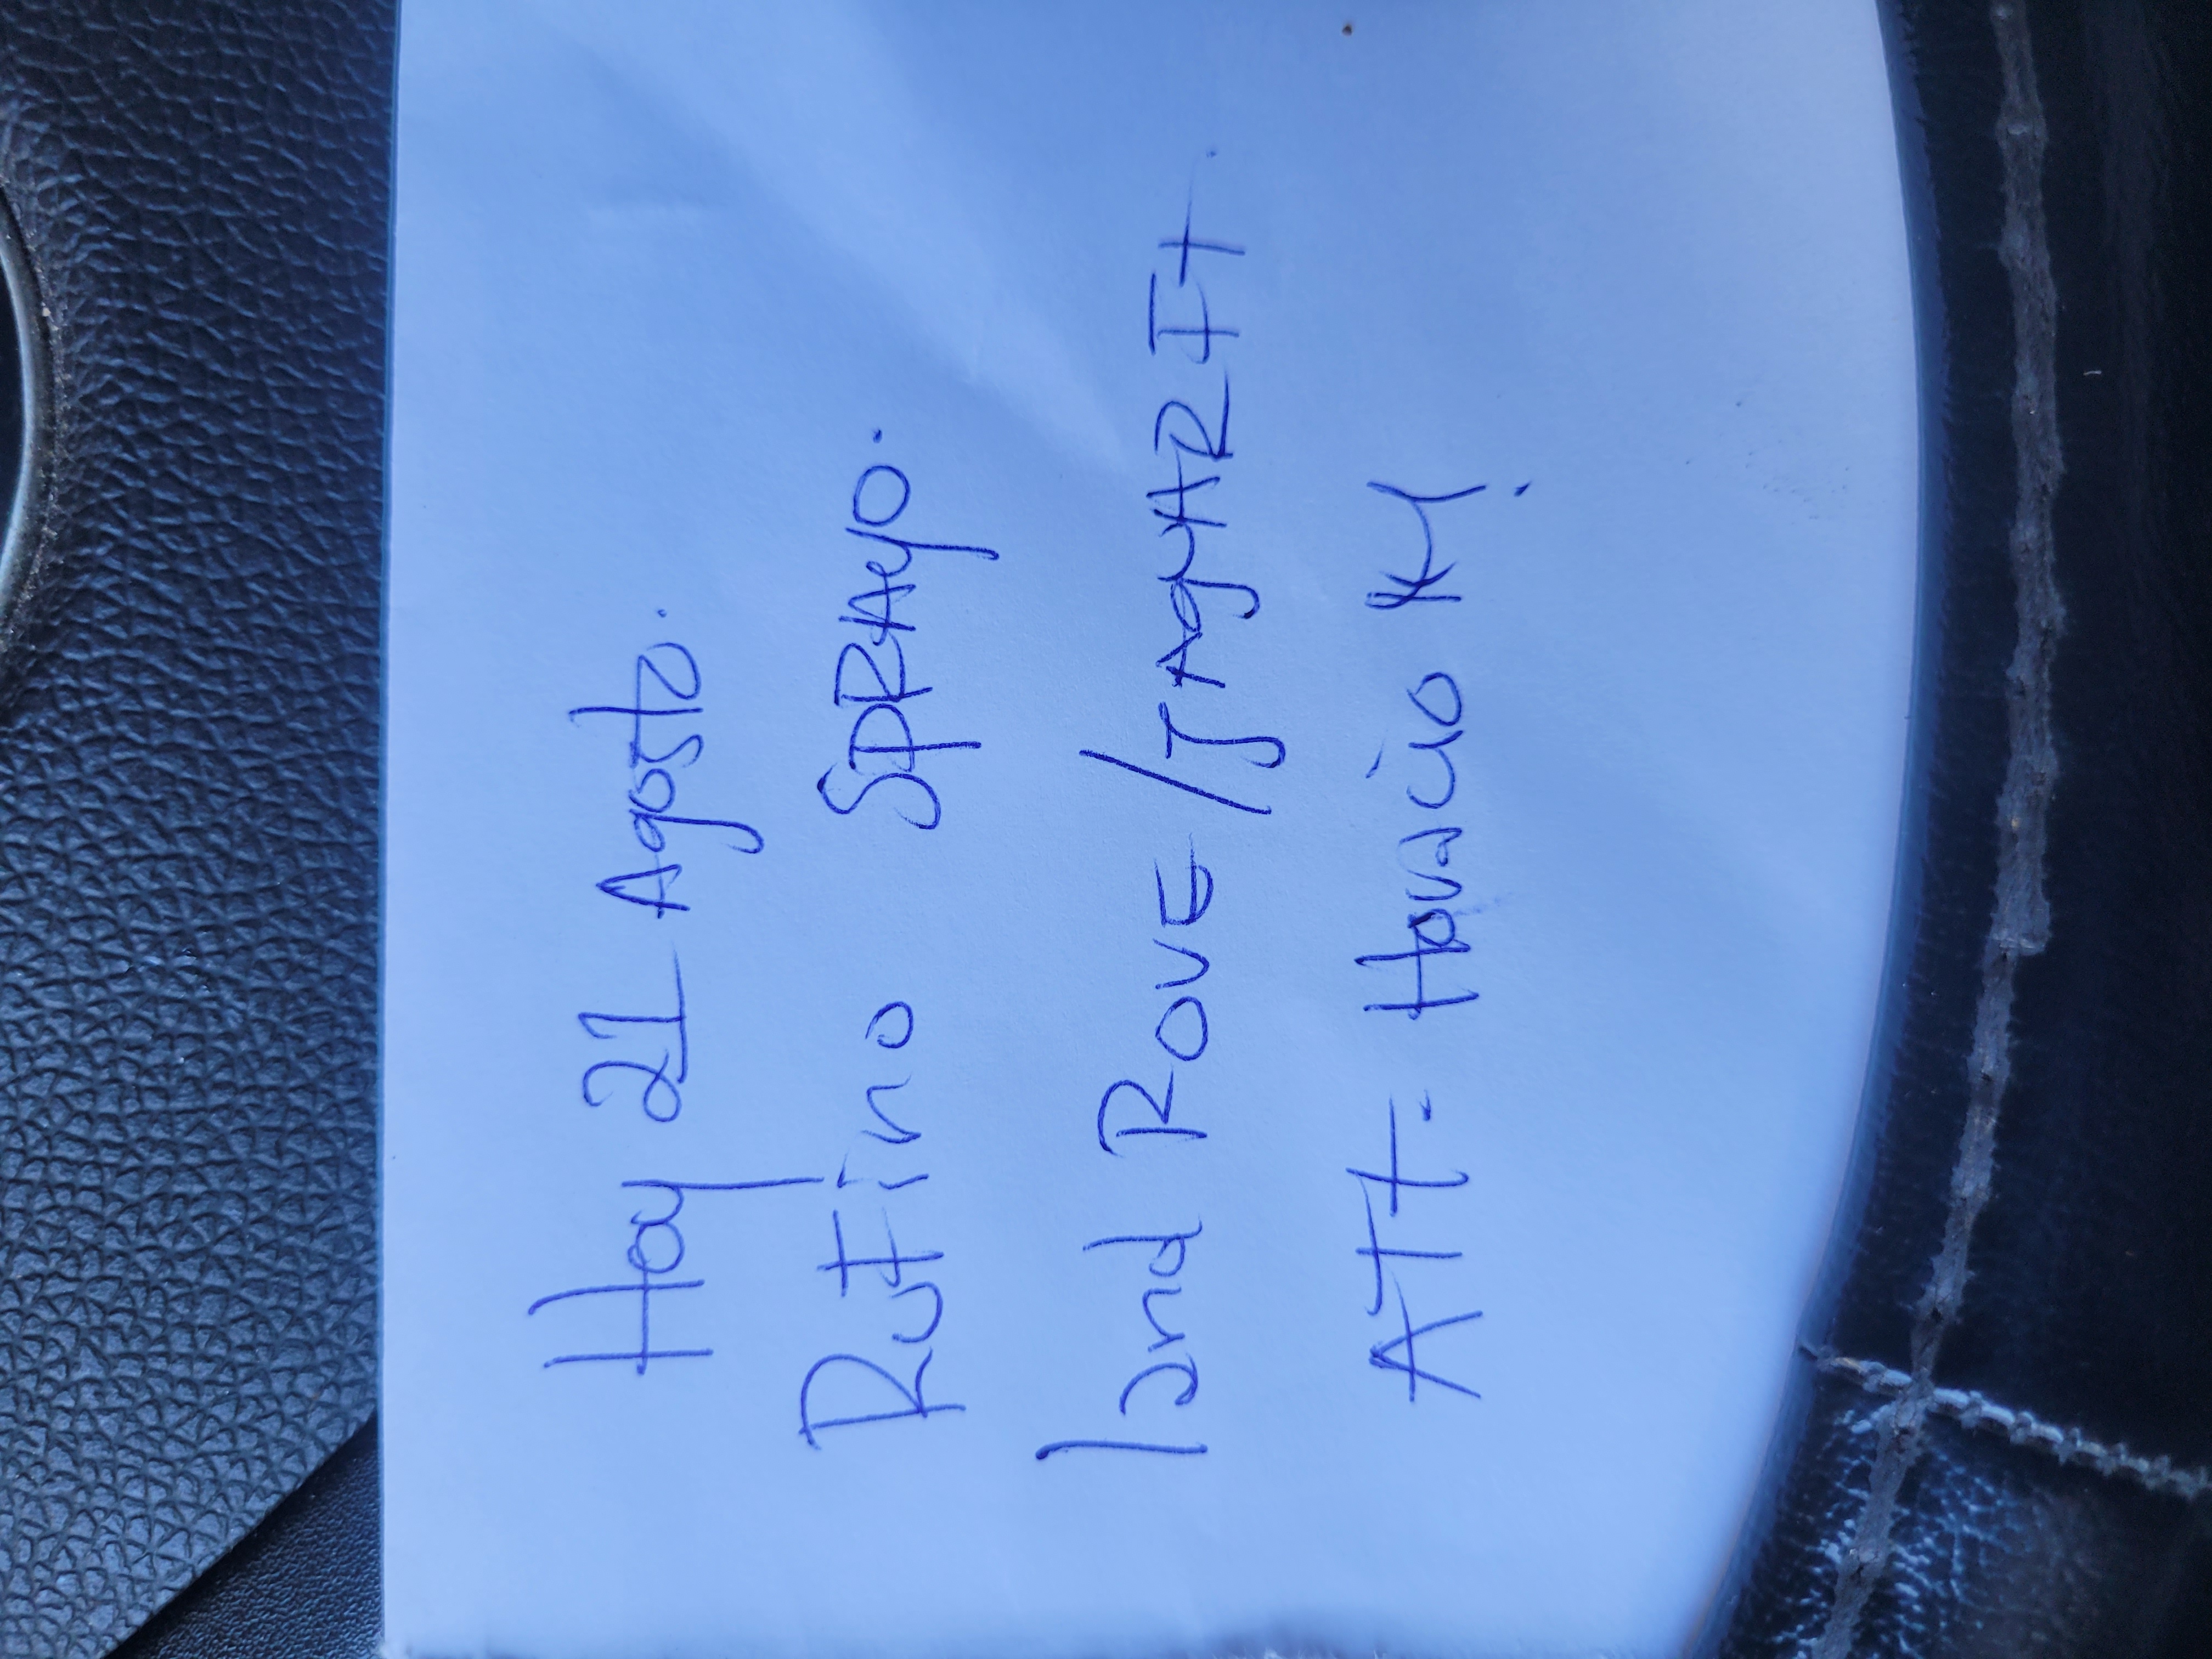 Hoy 21 Agosto.
Rufino SPRAyo.
land ROVE/JAgUAR I+.
ATT= Horacio K.